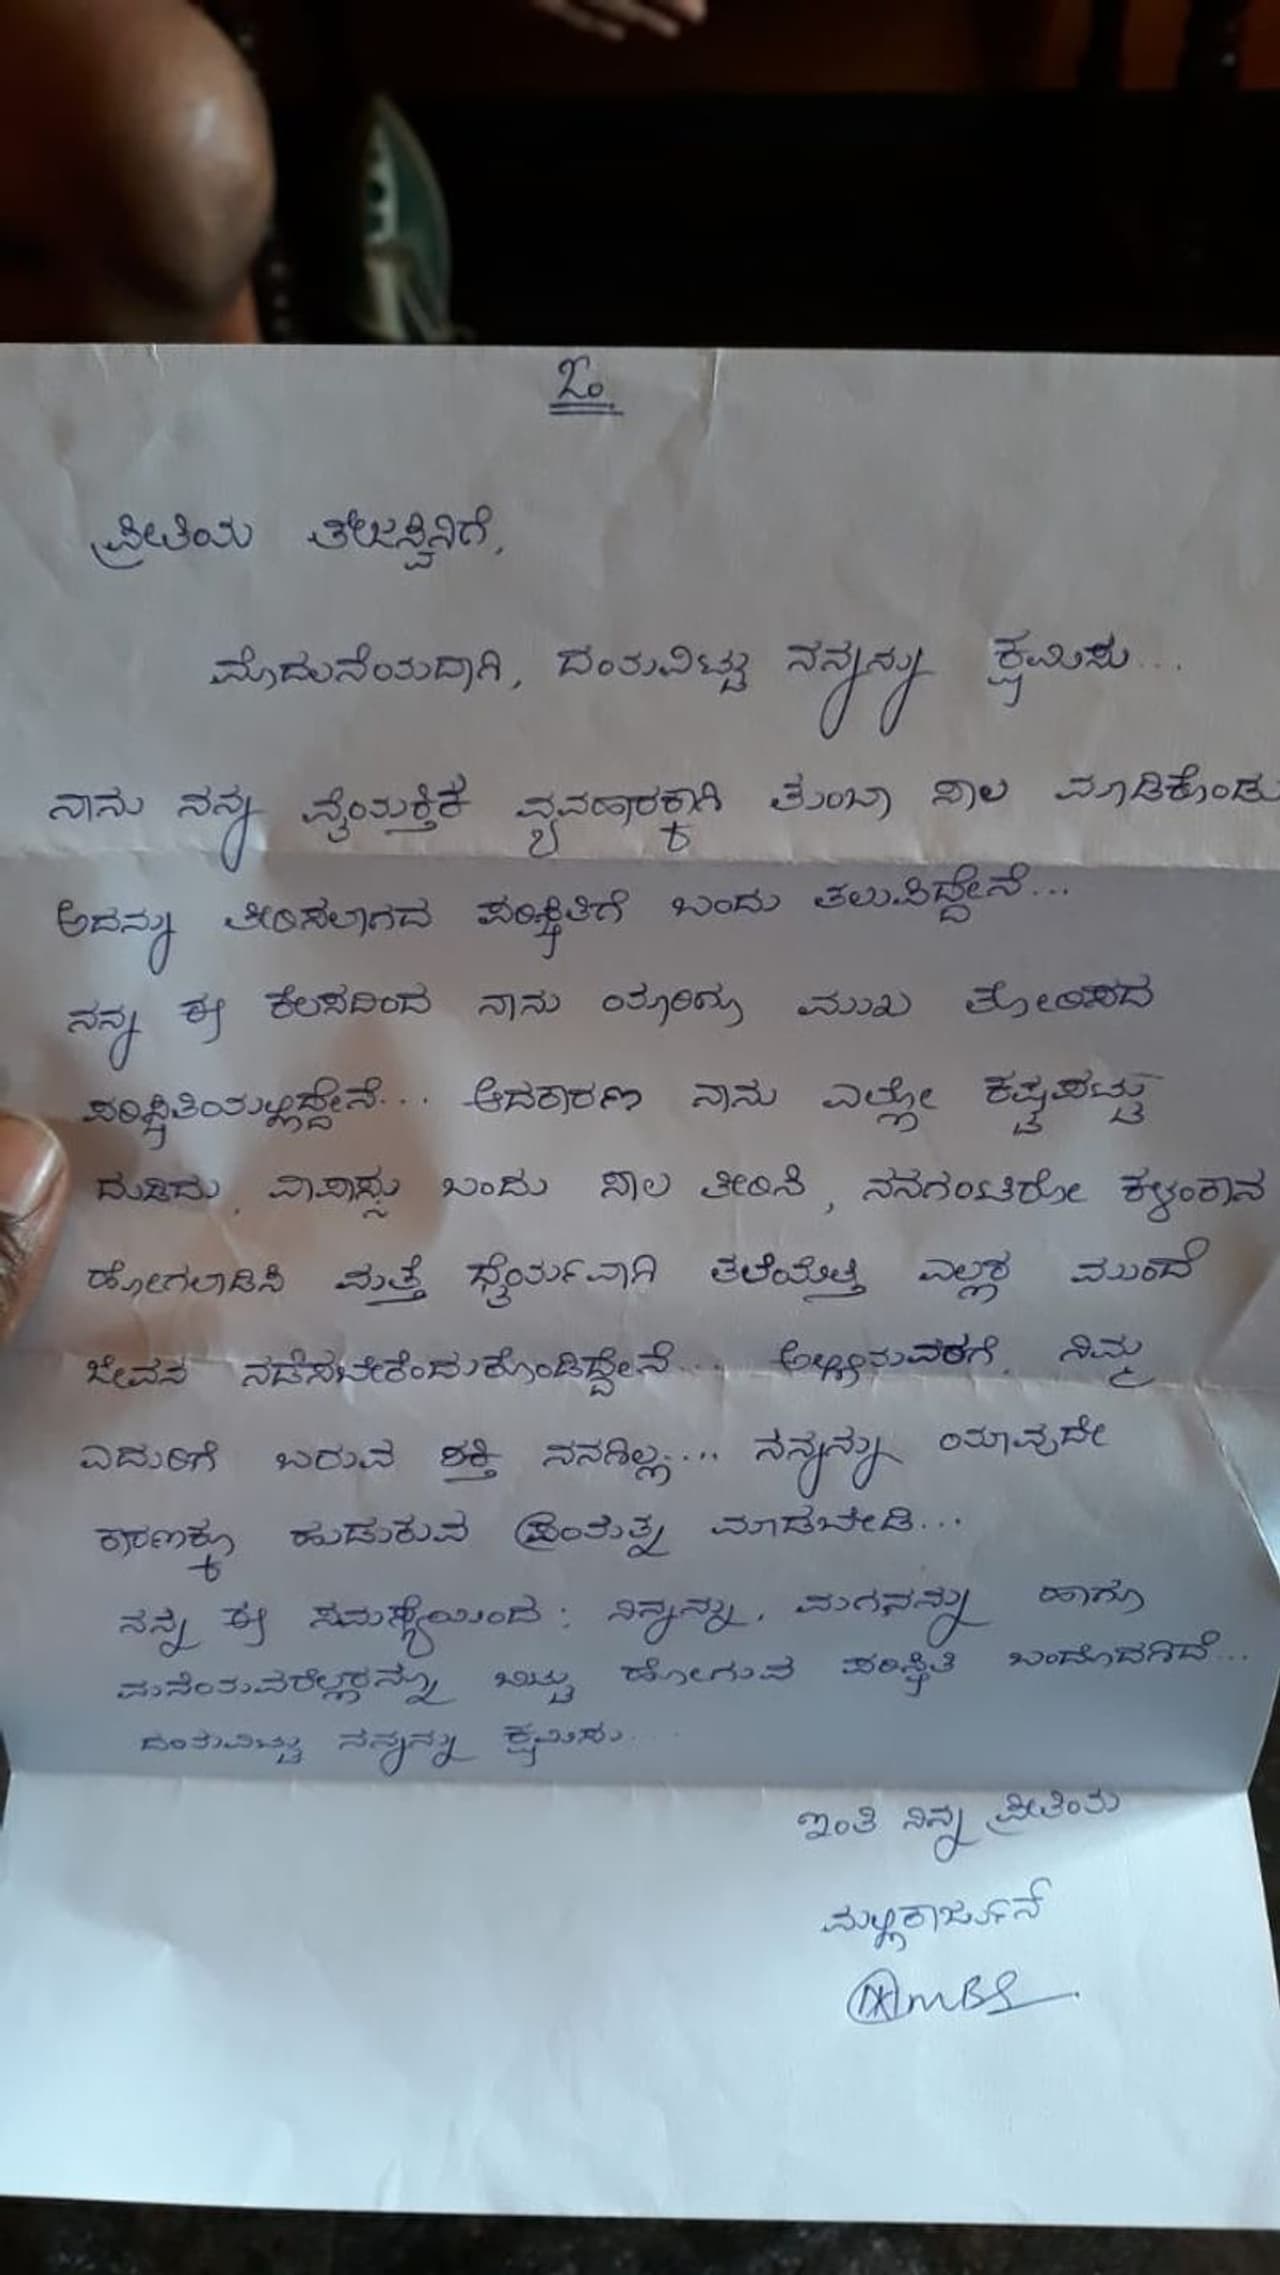 ಓಂ
ಪ್ರೀತಿಯ ತೇಜಸ್ವಿನಿಗೆ,
ಮೊದಲನೆಯದಾಗಿ, ದಯವಿಟ್ಟು ನನ್ನನ್ನು ಕ್ಷಮಿಸು...
ನಾನು ನನ್ನ ವೈಯಕ್ತಿಕ ವ್ಯವಹಾರಕ್ಕಾಗಿ ತುಂಬಾ ಸಾಲ ಮಾಡಿಕೊಂಡು
ಅದನ್ನು ತೀರಿಸಲಾಗದ ಪರಿಸ್ಥಿತಿಗೆ ಬಂದು ತಲುಪಿದ್ದೇನೆ...
ನನ್ನ ಈ ಕೆಲಸದಿಂದ ನಾನು ಯಾರಿಗೂ ಮುಖ ತೋರಿಸದ
ಪರಿಸ್ಥಿತಿಯಲ್ಲಿದ್ದೇನೆ... ಆದಕಾರಣ ನಾನು ಎಲ್ಲೋ ಕಷ್ಟಪಟ್ಟು
ದುಡಿದು, ವಾಪಾಸ್ಸು ಬಂದು ಸಾಲ ತೀರಿಸಿ, ನನಗಂಟಿರೋ ಕಳಂಕಾನ
ಹೋಗಲಾಡಿಸಿ ಮತ್ತೆ ಧೈರ್ಯವಾಗಿ ತಲೆಯೆತ್ತಿ ಎಲ್ಲರ ಮುಂದೆ
ಜೀವನ ನಡೆಸಬೇಕೆಂದುಕೊಂಡಿದ್ದೇನೆ... ಅಲ್ಲೀನುವರೆಗೆ ನಿಮ್ಮ
ಎದುರಿಗೆ ಬರುವ ಶಕ್ತಿ ನನಗಿಲ್ಲ.... ನನ್ನನ್ನು ಯಾವುದೇ
ಕಾರಣಕ್ಕೂ ಹುಡುಕುವ ಪ್ರಯತ್ನ ಮಾಡಬೇಡಿ...
ನನ್ನ ಈ ಸಮಸ್ಯೆಯಿಂದ: ನಿನ್ನನ್ನು, ಮಗನನ್ನು ಹಾಗೂ
ಮನೆಯವರೆಲ್ಲರನ್ನೂ ಬಿಟ್ಟು ಹೋಗುವ ಪರಿಸ್ಥಿತಿ ಬಂದೊದಗಿದೆ...
ದಯವಿಟ್ಟು ನನ್ನನ್ನು ಕ್ಷಮಿಸು...
ಇಂತಿ ನಿನ್ನ ಪ್ರೀತಿಯ
ಮಲ್ಲಿಕಾರ್ಜುನ್